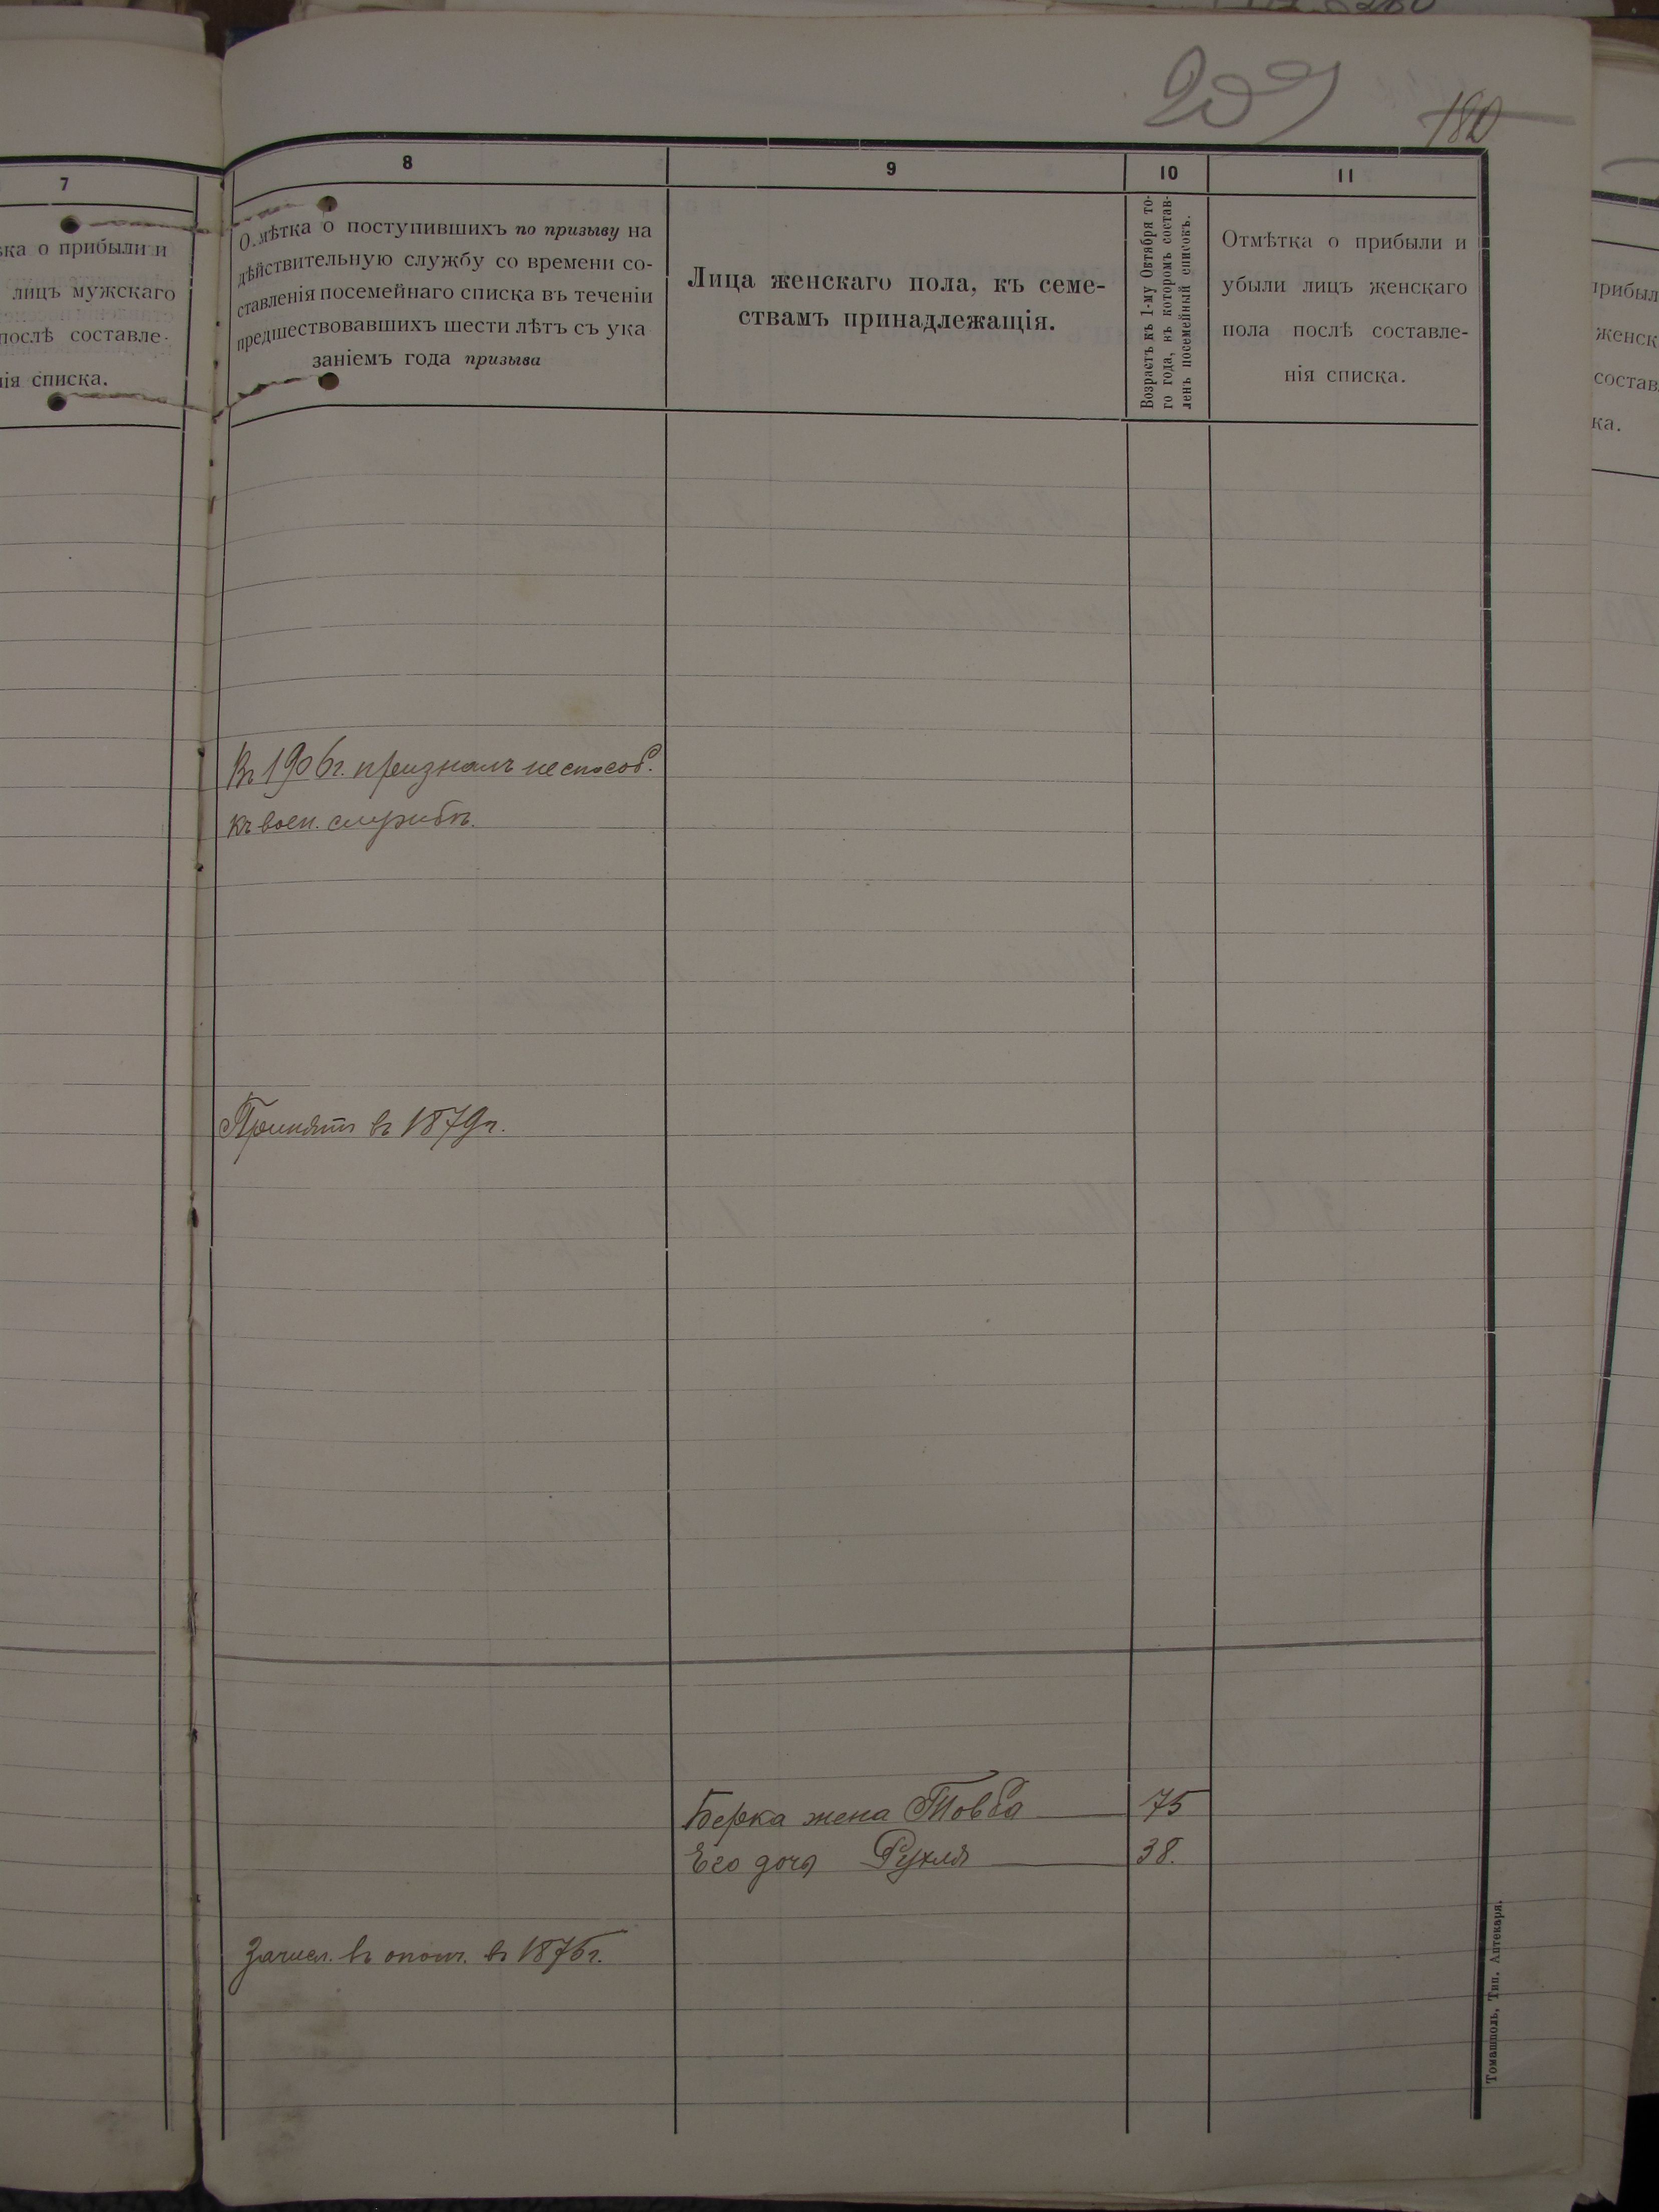 209
180
7
8
9
10
11
ка о прибыли и
лицъ мужскаго
послѣ составле-
нія списка.
Отмѣтка о поступившихъ по призыву на
дѣйствительную службу со времени со-
ставленія посемейнаго списка въ теченіи
предшествовавшихъ шести лѣтъ съ ука
заніемъ года призыва
Лица женскаго пола, къ семе-
ствамъ принадлежащія.
Возрастъ къ 1-му Октября то-
го года, въ которомъ состав-
ленъ посемейный списокъ.
Отмѣтка о прибыли и
убыли лицъ женскаго
пола послѣ составле-
нія списка.
прибыл
женск
состав
ка.
Въ 1906г. признанъ неспособ.
къ воен. службѣ.
Принятъ въ 1879г.
Берка жена Товба 75
Его дочь Рухля 38.
Зачисл. въ опол. въ 1876г.
Томашполь, Тип. Аптекаря.